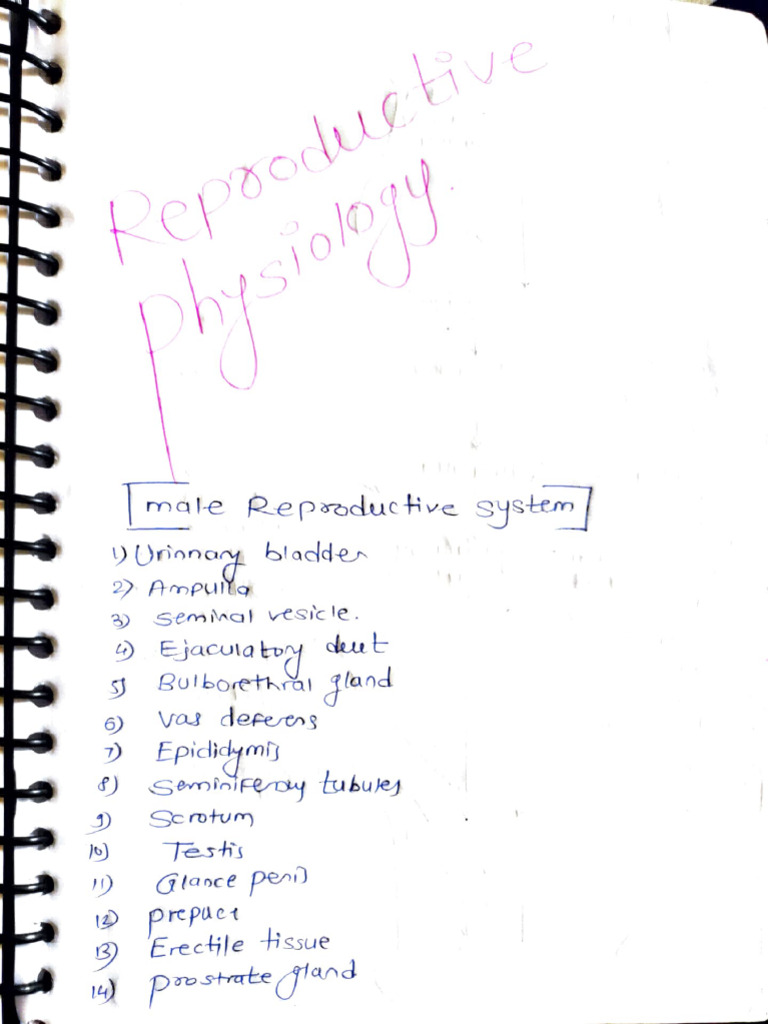 Reproductive
physiology.
male Reproductive system
1) Urinnary bladder
2) Ampulla
3) seminal vesicle.
4) Ejaculatory duct
5) Bulborethral gland
6) Vas deferens
7) Epididymis
8) Seminiferouy tubules
9) Scrotum
10) Testis
11) Glance penis
12) prepuce
13) Erectile tissue
14) prostrate gland